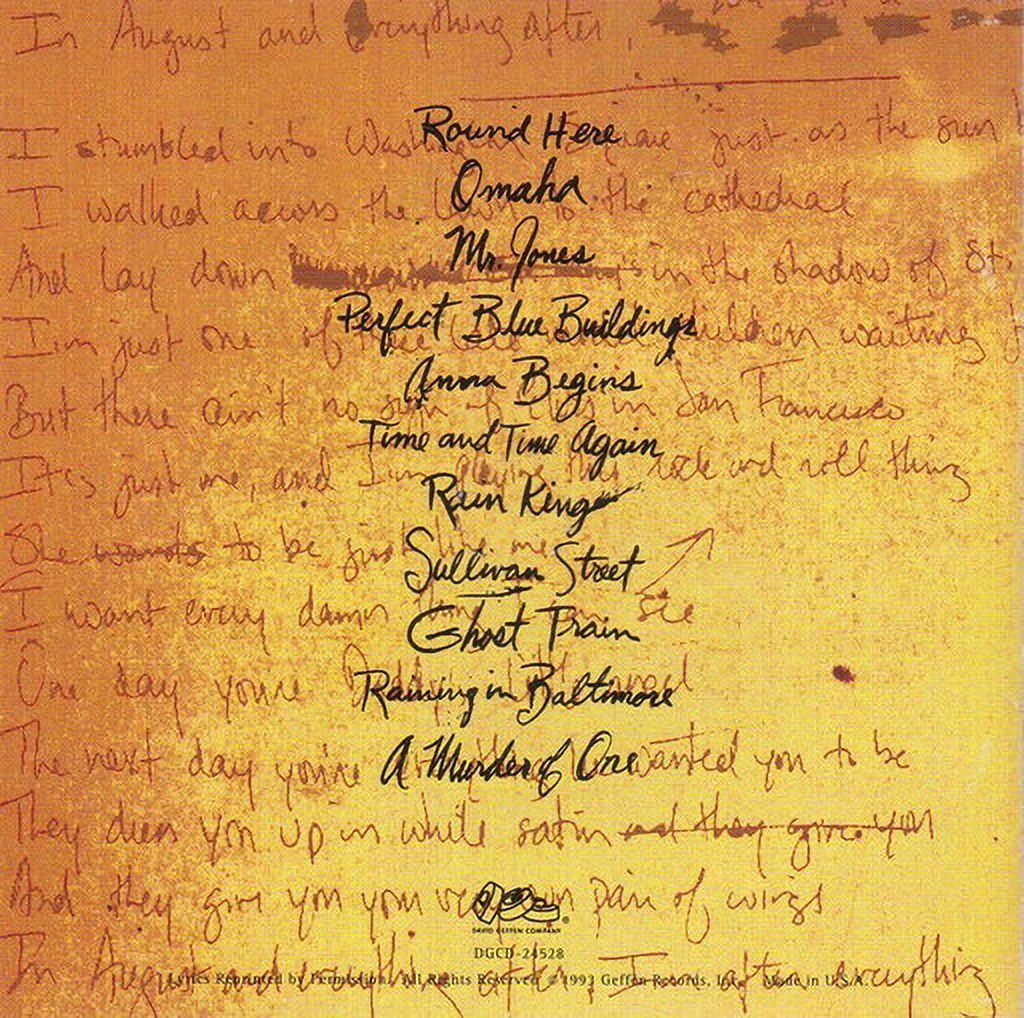 In August and Everything After,
Round Here
I stumbled into Washington Square just as the sun
Omaha
I walked across the lawn to the cathedral
Mr. Jones
And lay down in the shadow of St.
Perfect Blue Buildings
I'm just one of these children waiting
Anna Begins
But there ain't no sign of in San Francisco
Time and Time Again
It's just me, and I'm playing this rock and roll thing
Rain King
She wants to be just like me
Sullivan Street
I want every damn thing I can see
Ghost Train
One day you're Daddy's little
Raining in Baltimore
The next day you're wanted you to be
A Murder of One
They dress you up in white satin and they give you
And they give you your very own pair of wings
DAVID GEFFEN COMPANY ®
DGCD-24528
In August and everything after, I'm after everything
Lyrics Reprinted by Permission. All Rights Reserved ©1993 Geffen Records, Inc. Made in U.S.A.